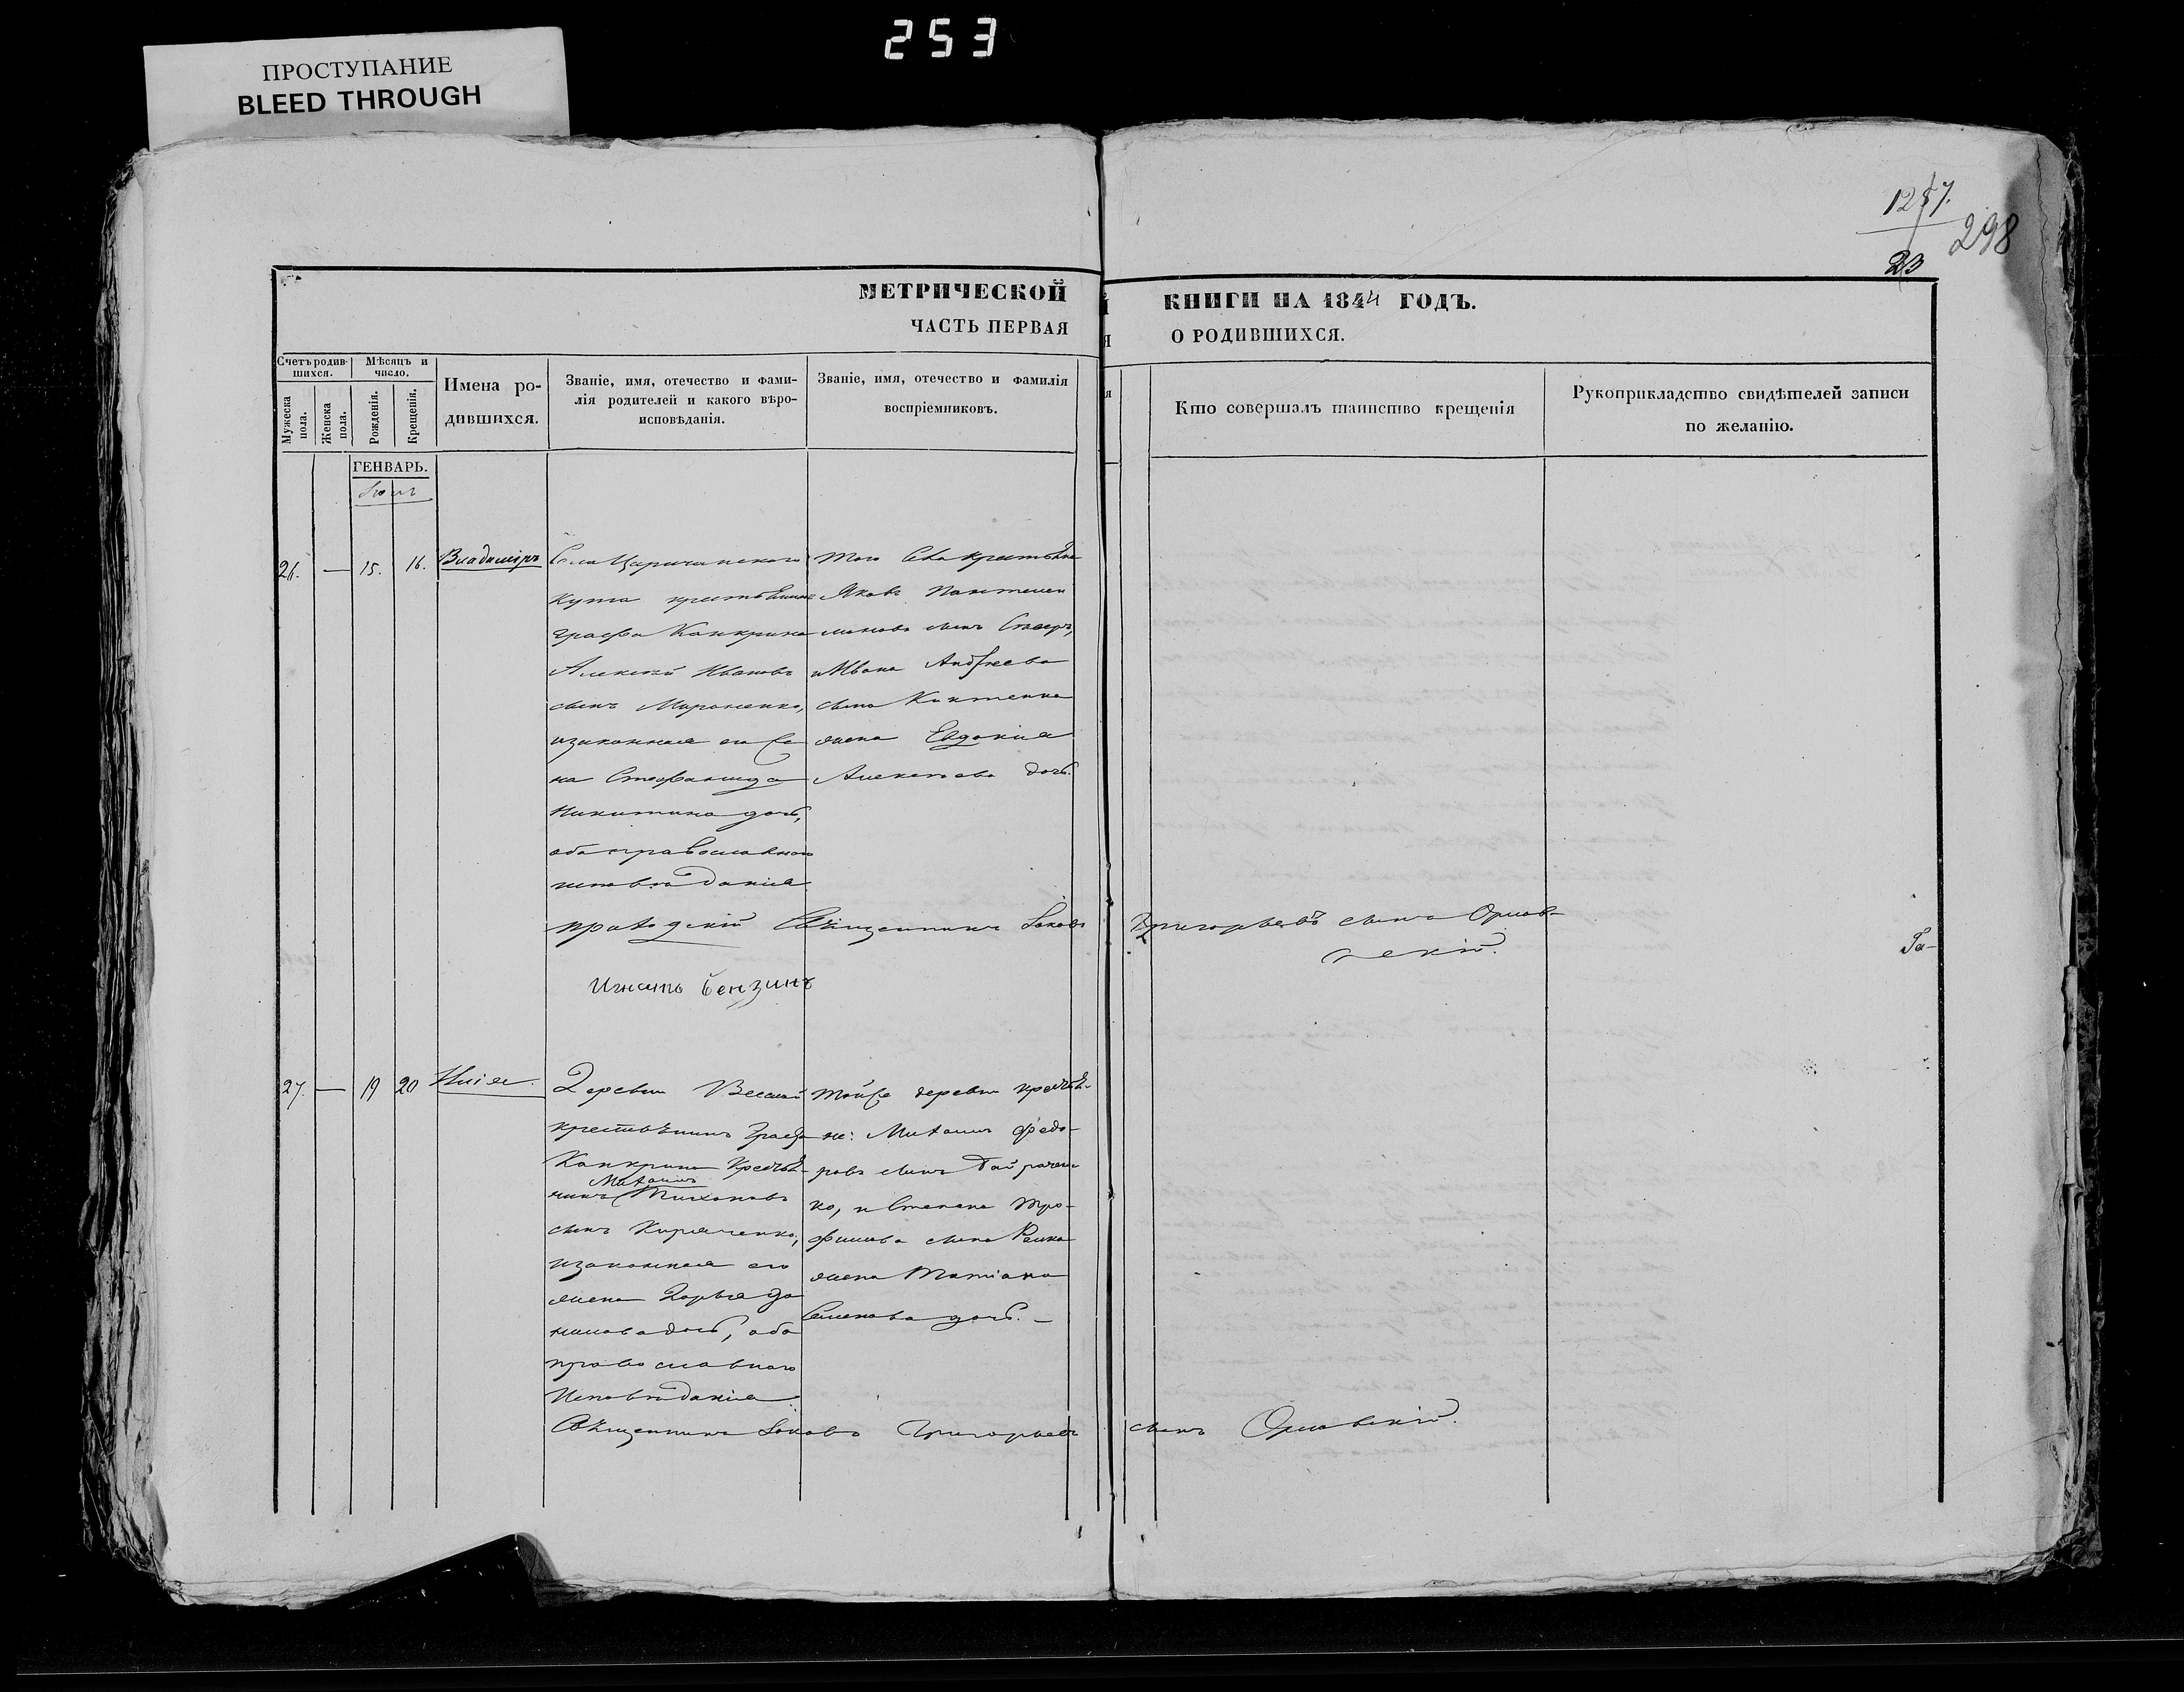 253
ПРОСТУПАНИЕ
BLEED THROUGH
1257.
23
298
МЕТРИЧЕСКОЙ
КНИГИ НА 1844 ГОДЪ.
ЧАСТЬ ПЕРВАЯ
О РОДИВШИХСЯ.
Счетъ родив-
шихся.
Мужеска
пола.
Женска
пола.
Мѣсяцъ и
число.
Рожденія.
Крещенія.
Имена ро-
дившихся.
Званіе, имя, отечество и фами-
лія родителей и какого вѣро-
исповѣданія.
Званіе, имя, отечество и фамилія
воспріемниковъ.
Кто совершалъ таинство крещенія
Рукоприкладство свидѣтелей записи
по желанію.
ГЕНВАРЬ.
26. — 15. 16. Владиміръ
Села Царичанскаго
Кута крестьянинъ
графа Канкрина
Алексѣй Ивановъ
сынъ Мироненко,
изаконная его Же
на Стефанида
Никитина дочь,
оба православнаго
исповѣданія
Того Села крестьяне
Яковъ Пантелеи
моновъ сынъ
иИвана Андреева
сына
жена Евдокія
Алексѣева дочь.
приходскій Священникъ Іаковъ Григорьевъ сынъ Орлов-
скій.
Га-
Игнатъ Бензинъ
27. — 19 20 Илія.
Деревни Веселой
крестьянинъ Графа
Канкрина Крестья-
Михаилъ
нинъ Тихоновъ
сынъ Кириченко,
изаконная его
жена Дарья Да
нилова дочь, оба
православнаго
Исповѣданія.
Тойже деревни крестья-
не: Михаилъ Федо-
ровъ сынъ Байрачен
ко, и Степана Тро-
фимова сына
жена Татіана
Семенова дочь. —
Священникъ Іаковъ Григорьевъ сынъ Орловскій.